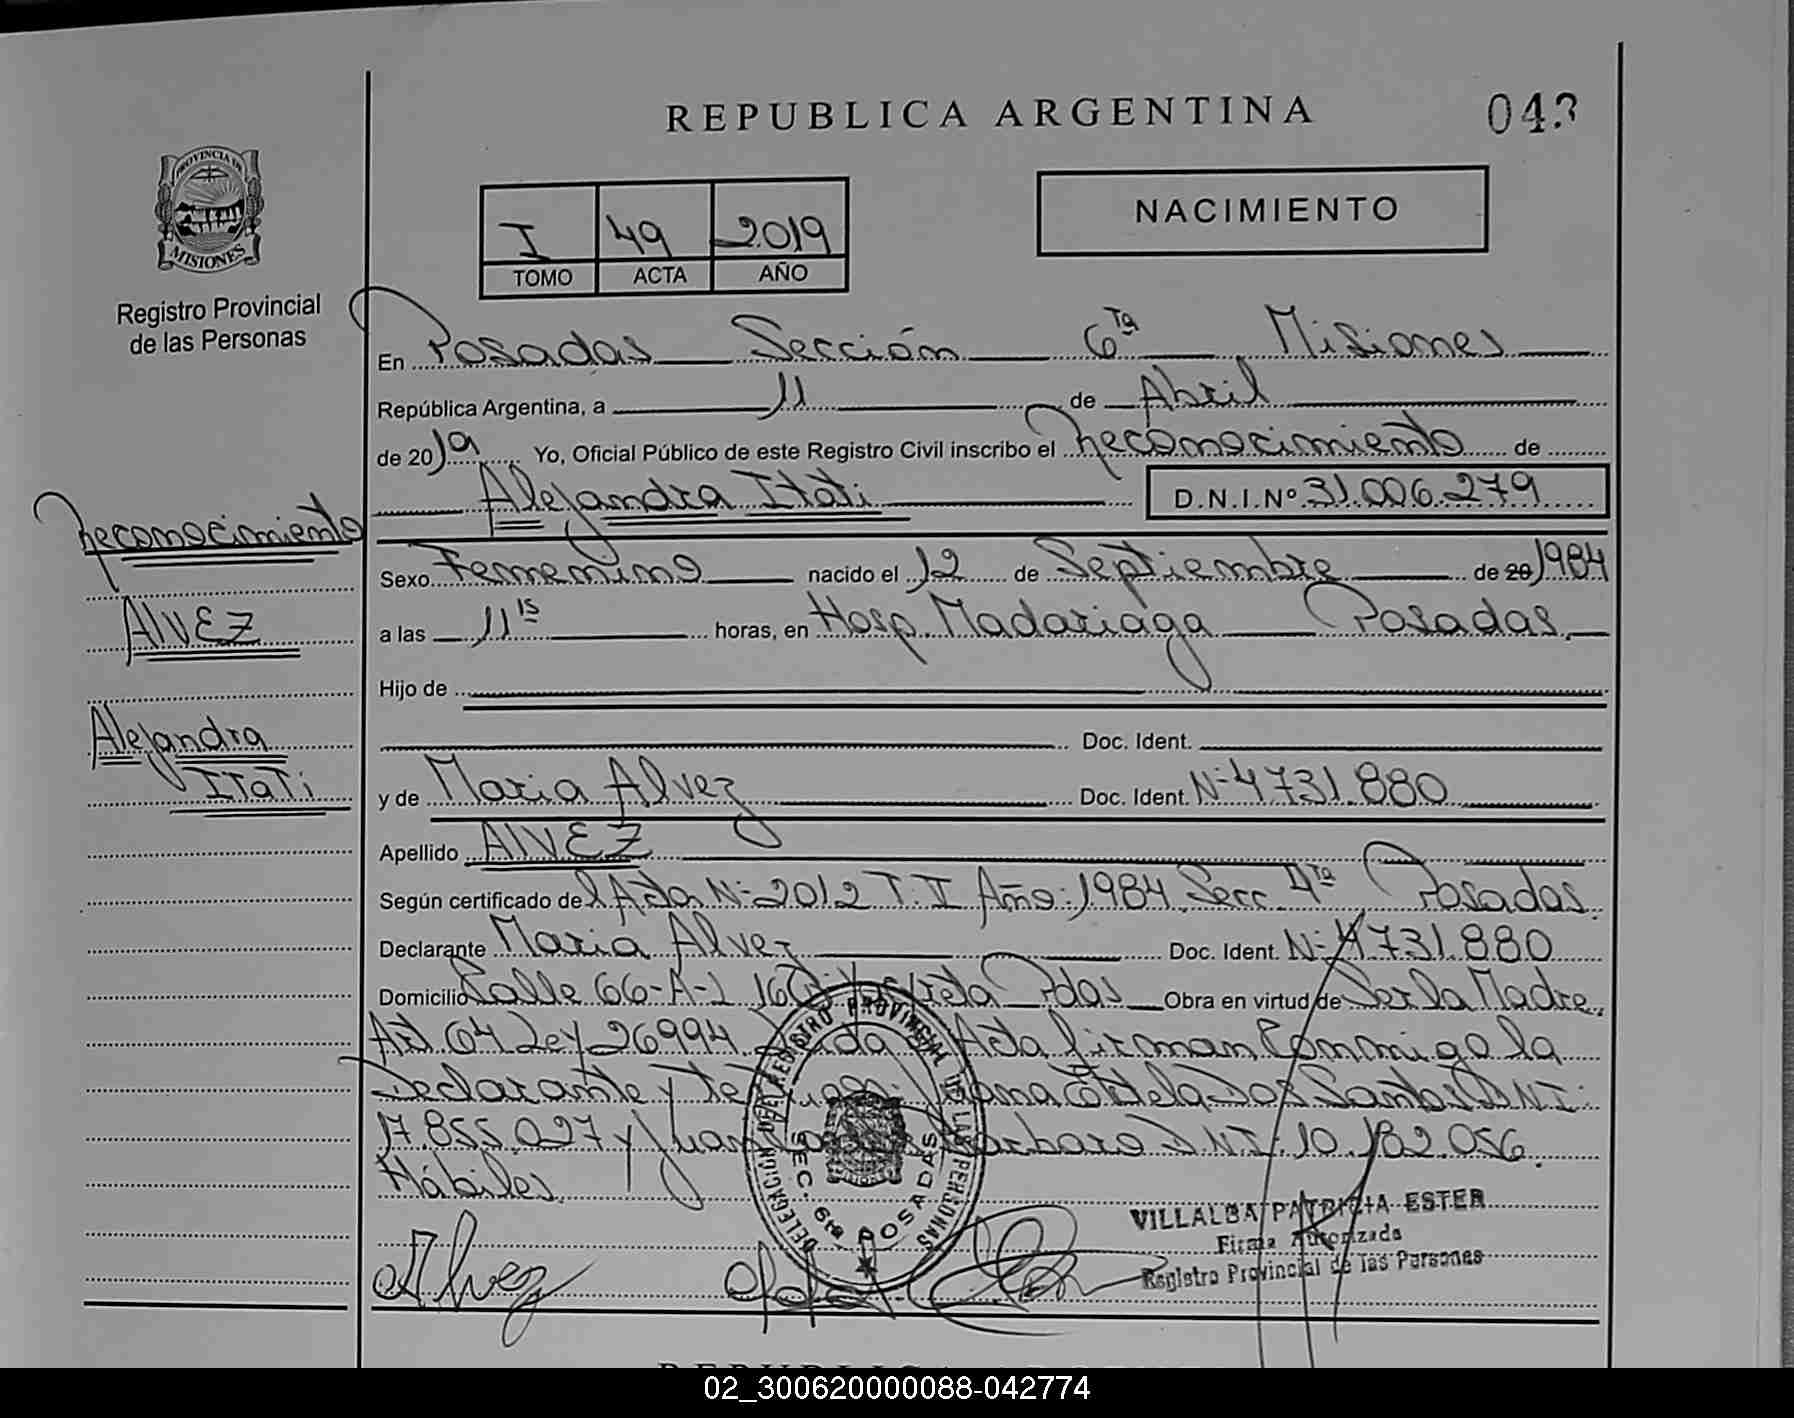 REPUBLICA ARGENTINA
043
PROVINCIA DE
MISIONES
Registro Provincial
de las Personas
I 49 2019
TOMO ACTA AÑO
NACIMIENTO
En Posadas Sección 6ta Misiones
República Argentina, a 11 de Abril
de 2019 Yo, Oficial Público de este Registro Civil inscribo el Reconocimiento de
Alejandra Itati D.N.I.Nº 31.006.279
Reconocimiento
ALVEZ
Alejandra
ITaTi
Sexo Femenino nacido el 12 de Septiembre de 20 1984
a las 11 15 horas, en Hosp. Madariaga Posadas.
Hijo de
Doc. Ident.
y de Maria Alvez Doc. Ident. Nº 4.731.880
Apellido ALVEZ
Según certificado del Acta Nº 2012 T. I Año: 1984 Secc 4ta Posadas.
Declarante Maria Alvez Doc. Ident. Nº 4.731.880
Domicilio Calle 66-A-2 Pdas Obra en virtud de Ser la Madre.
Art. 64 Ley 26994. Acta firman Conmigo la
Declarante y Dos Santos DNI:
17.855.027 y Juan DNI: 10.182.056.
Hábiles.
DELEGACION DEL REGISTRO PROVINCIAL DE LAS PERSONAS
SEC. 6ta POSADAS
Alvez
VILLALBA PATRICIA ESTER
Firma Autorizada
Registro Provincial de las Personas
02_300620000088-042774